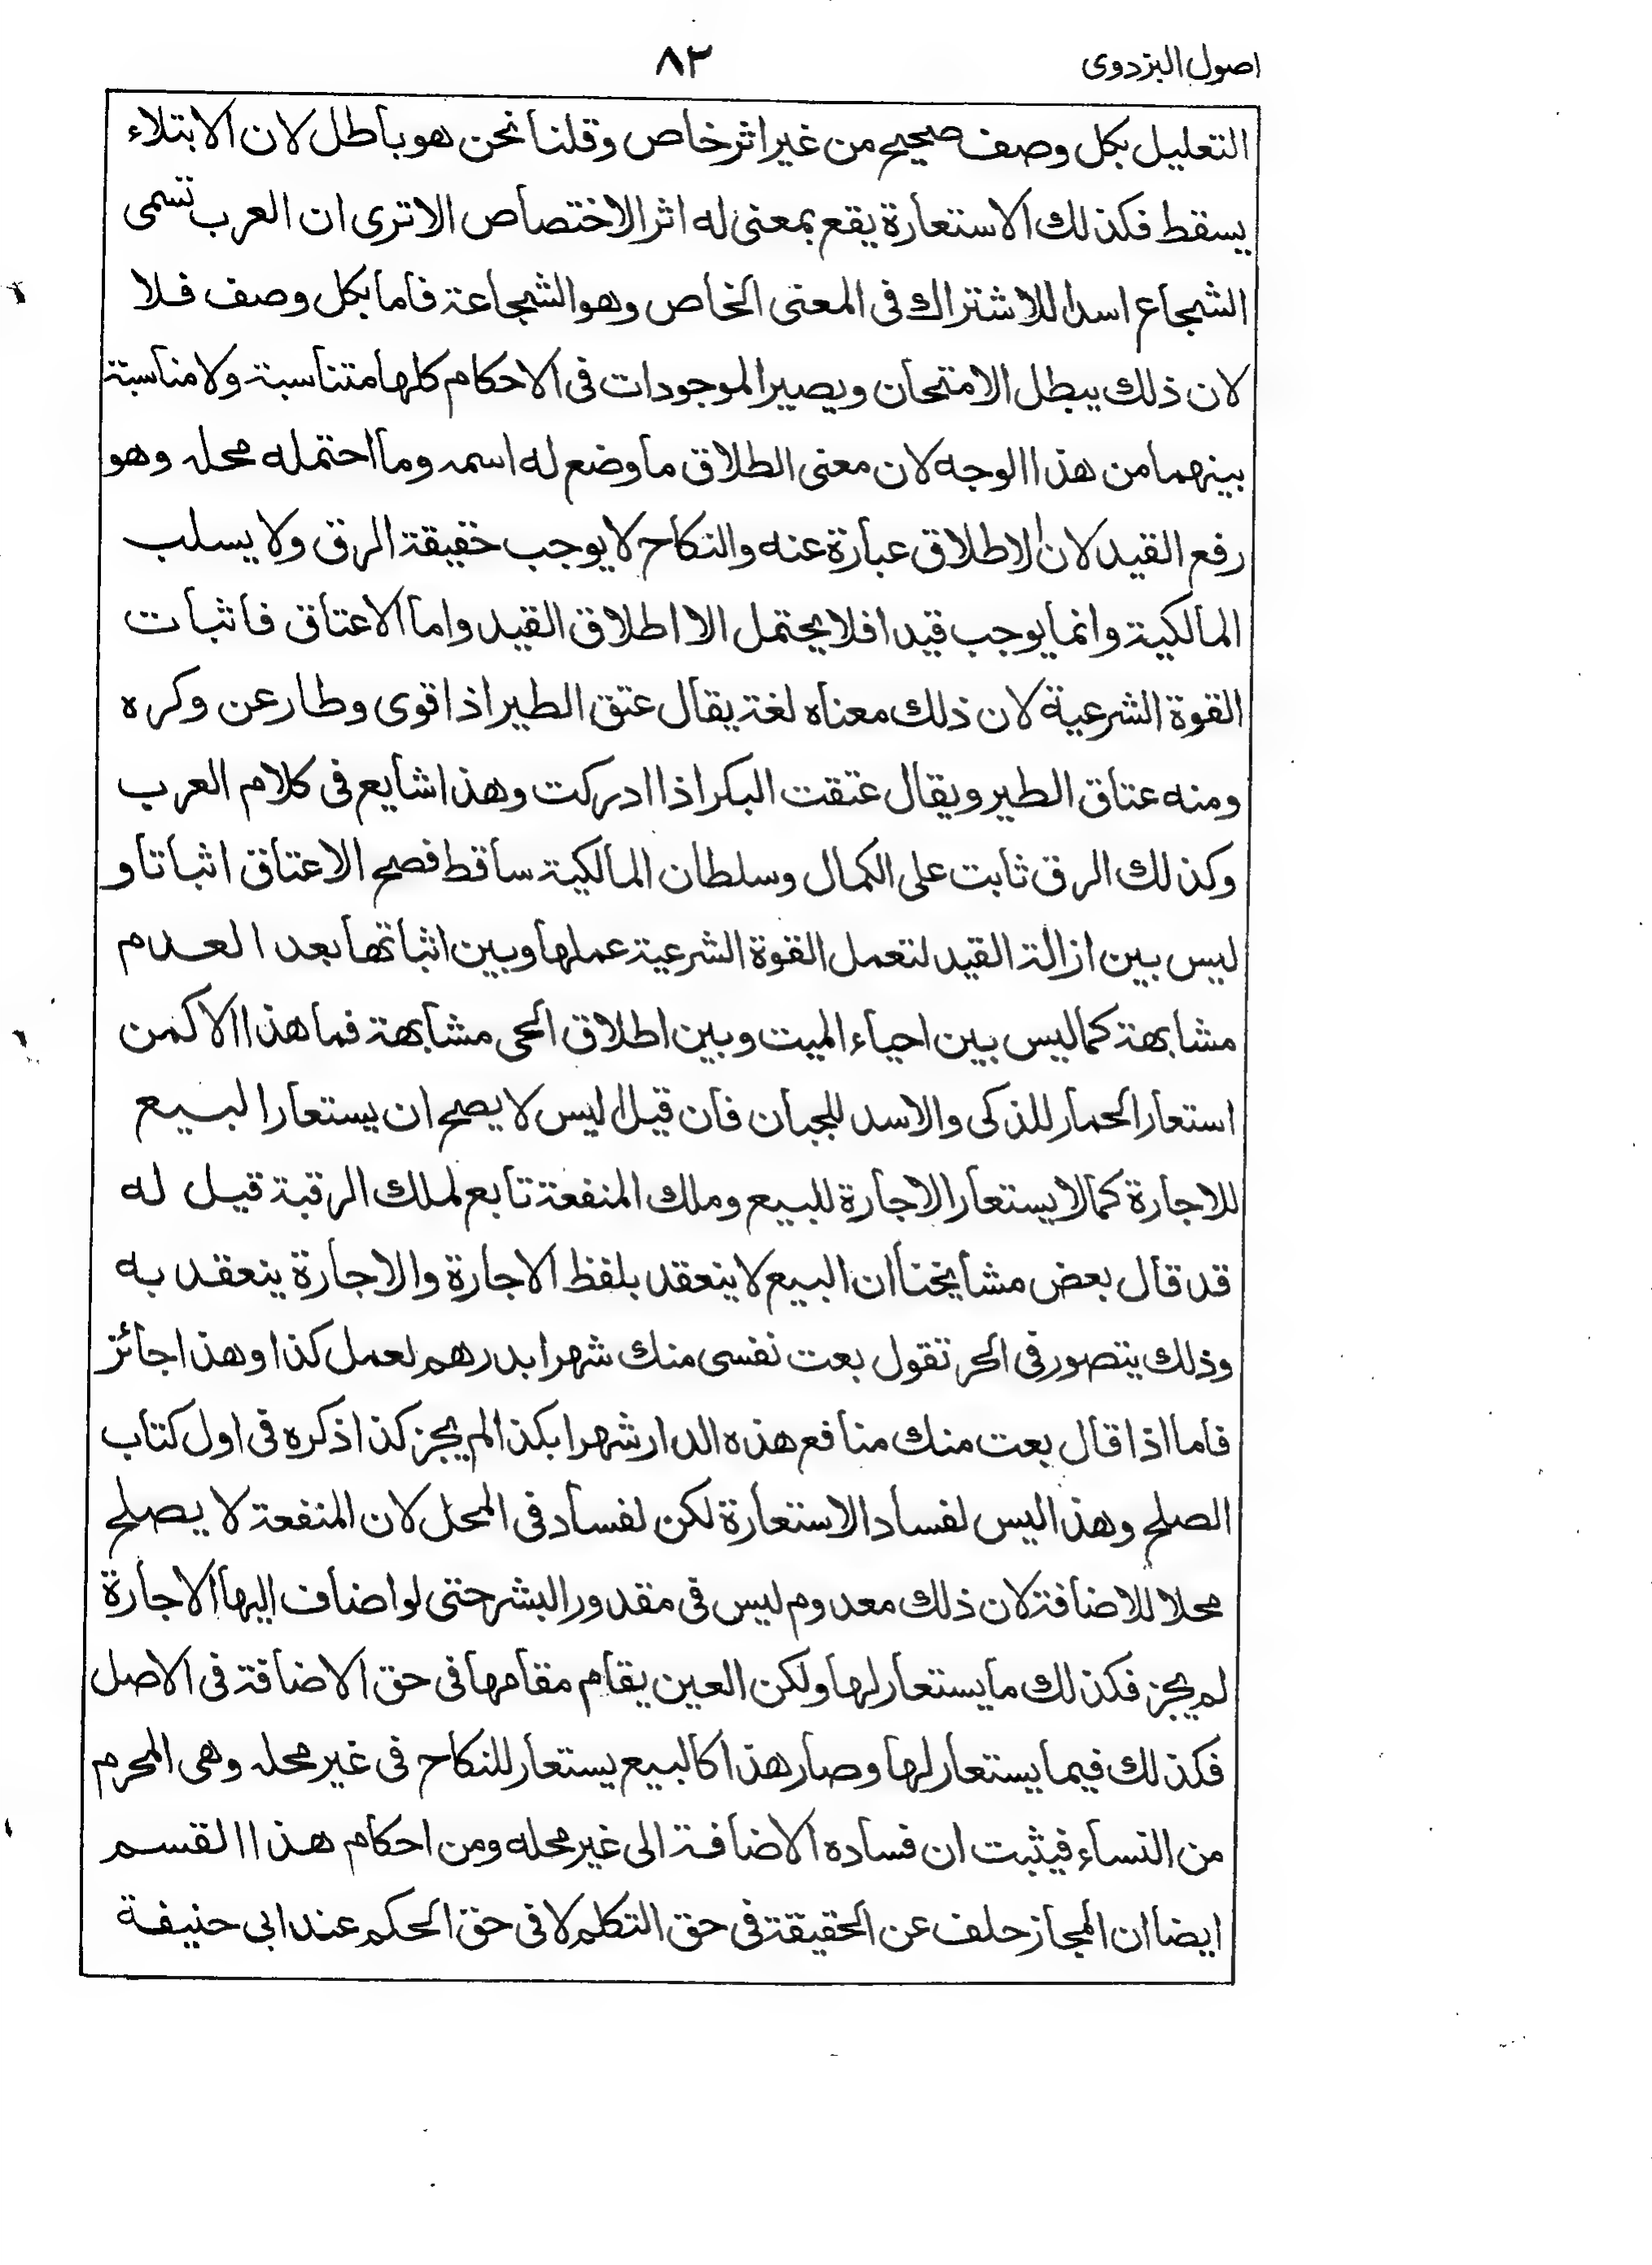 اصول البزدوى
٨٣
التعليل بكل وصف صحيح من غير اثر خاص وقلنا نحن هو باطل لان الابتلاء
يسقط فكذلك الاستعارة يقع بمعنى له اثر الاختصاص الا ترى ان العرب تسمى
الشجاع اسدا للاشتراك فى المعنى الخاص وهو الشجاعة فاما بكل وصف فلا
لان ذلك يبطل الامتحان ويصير الموجودات فى الاحكام كلها متناسبة ولا مناسبة
بينهما من هذا الوجه لان معنى الطلاق ما وضع له اسمه وما احتمله محله وهو
رفع القيد لان الاطلاق عبارة عنه والنكاح لا يوجب حقيقة الرق ولا يسلب
المالكية وانما يوجب قيدا فلا يحتمل الا اطلاق القيد واما الاعتاق فاثبات
القوة الشرعية لان ذلك معناه لغة يقال عتق الطير اذا قوى وطار عن وكره
ومنه عتاق الطير ويقال عتقت البكر اذا ادركت وهذا شايع فى كلام العرب
وكذلك الرق ثابت على الكمال وسلطان المالكية ساقط فصح الاعتاق اثباتا و
ليس بين ازالة القيد لتعمل القوة الشرعية عملها وبين اثباتها بعد العدم
مشابهة كما ليس بين احياء الميت وبين اطلاق الحى مشابهة فما هذا الا كمن
استعار الحمار للذكى والاسد للجبان فان قيل اليس لا يصح ان يستعار البيع
للاجارة كما لا يستعار الاجارة للبيع وملك المنفعة تابع لملك الرقبة قيل له
قد قال بعض مشايخنا ان البيع لا ينعقد بلفظ الاجارة والاجارة ينعقد به
وذلك يتصور فى الحر تقول بعت نفسى منك شهرا بدرهم لعمل كذا وهذا جائز
فاما اذا قال بعت منك منافع هذه الدار شهرا بكذا لم يجز كذا ذكره فى اول كتاب
الصلح وهذا ليس لفساد الاستعارة لكن لفساد فى المحل لان المنفعة لا يصلح
محلا للاضافة لان ذلك معدوم ليس فى مقدور البشر حتى لو اضاف اليها الاجارة
لم يجز فكذلك ما يستعار لها ولكن العين يقام مقامها فى حق الاضافة فى الاصل
فكذلك فيما يستعار لها وصار هذا كالبيع يستعار للنكاح فى غير محله وهى المحرم
من النساء فيثبت ان فساده الاضافة الى غير محله ومن احكام هذا القسم
ايضا ان المجاز حلف عن الحقيقة فى حق التكلم لا فى حق الحكم عند ابى حنيفة